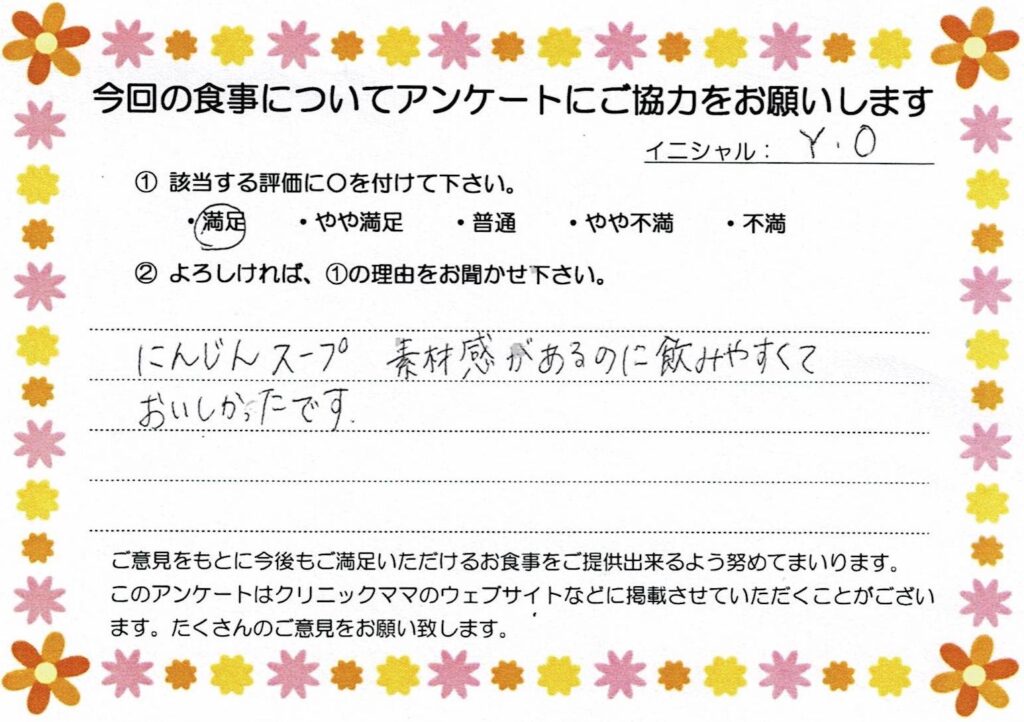 今回の食事についてアンケートにご協力をお願いします
イニシャル： Y.O
① 該当する評価に〇を付けて下さい。
・満足 ・やや満足 ・普通 ・やや不満 ・不満
② よろしければ、①の理由をお聞かせ下さい。
にんじんスープ 素材感があるのに飲みやすくて
おいしかったです.
ご意見をもとに今後もご満足いただけるお食事をご提供出来るよう努めてまいります。
このアンケートはクリニックママのウェブサイトなどに掲載させていただくことがござい
ます。たくさんのご意見をお願い致します。